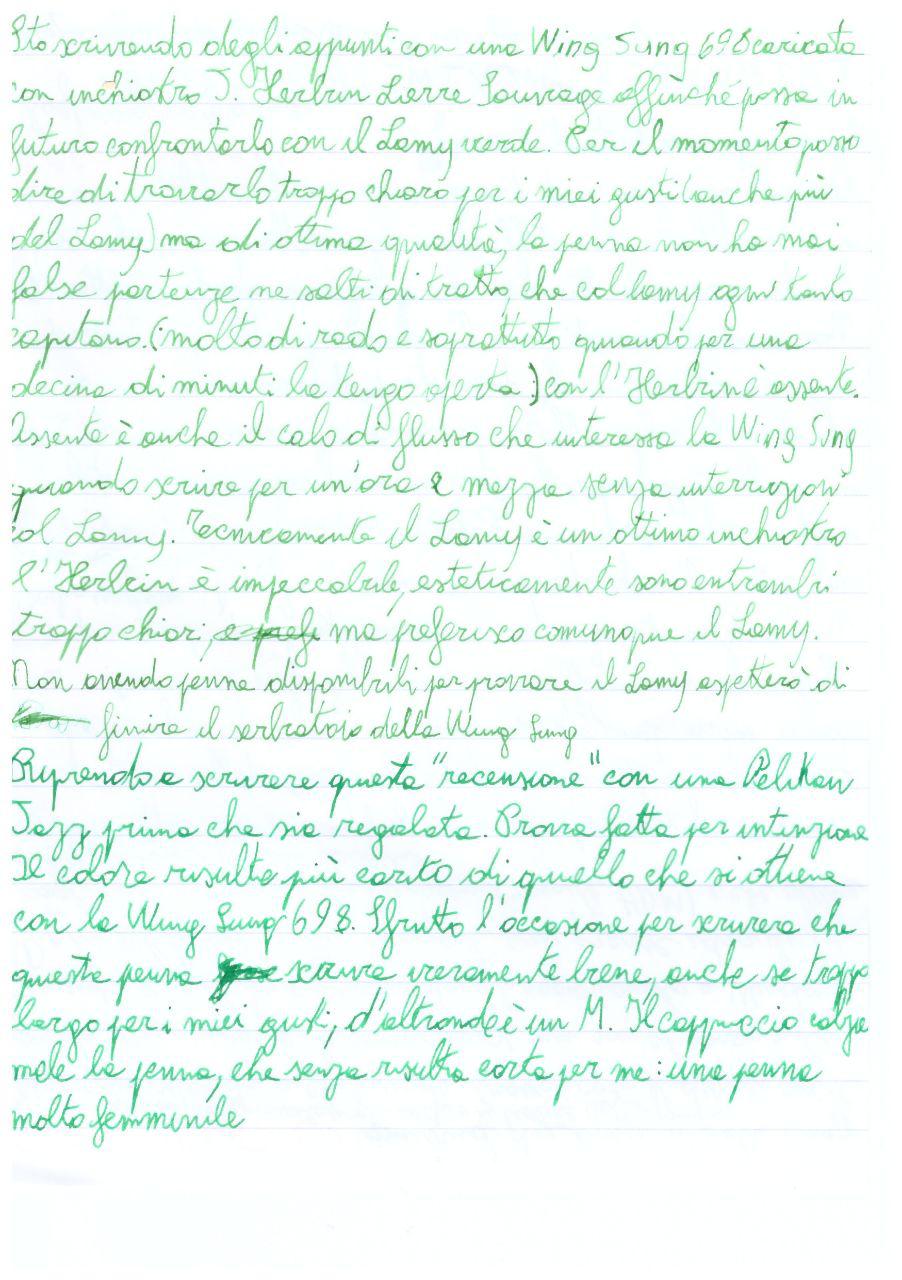 Sto scrivendo degli appunti con una Wing Sung 698 caricata
con inchiostro J. Herbin Lierre Sauvage affinché possa in
futuro confrontarlo con il Lamy verde. Per il momento posso
dire di trovarlo troppo chiaro per i miei gusti (anche più
del Lamy) ma di ottima qualità, la penna non ha mai
false partenze ne salti di tratto, che col Lamy ogni tanto
capitano. (molto di rado e soprattutto quando per una
decina di minuti la tengo aperta) con l'Herbin è assente.
Assente è anche il calo di flusso che interessa la Wing Sung
quando scrive per un'ora e mezza senza interruzioni
col Lamy. Tecnicamente il Lamy è un ottimo inchiostro
l'Herbin è impeccabile, esteticamente sono entrambi
troppo chiari, e pref ma preferisco comunque il Lamy.
Non avendo penne disponibili per provare il Lamy aspetterò di
finire il serbatoio della Wing Sung
Riprendo a scrivere questa "recensione" con una Pelikan
Jazz prima che sia regalata. Prova fatta per intinzione
Il colore risulta più carico di quello che si ottiene
con la Wing Sung 698. Sfrutto l'occasione per scrivere che
questa penna scrive veramente bene, anche se troppo
largo per i miei gusti, d'altronde è un M. Il cappuccio calza
male la penna, che senza risulta corta per me: una penna
molto femminile